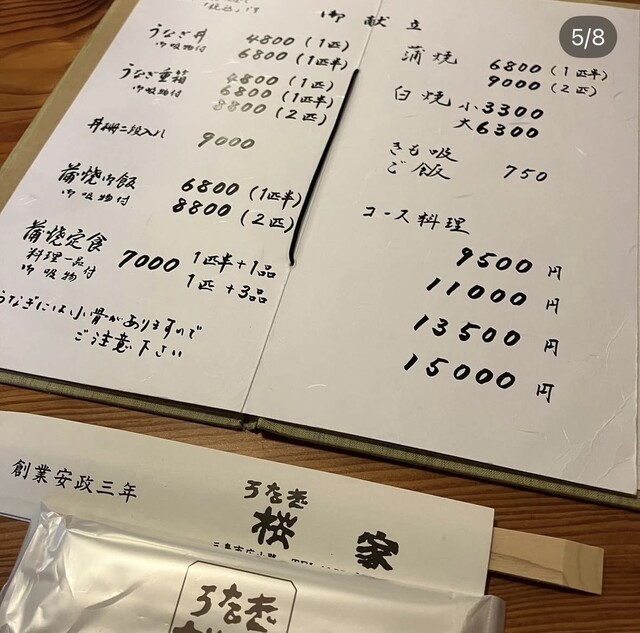 5/8
税込です
うなぎ丼 4800(1匹)
御吸物付 6800(1匹半)
うなぎ重箱 4800(1匹)
御吸物付 6800(1匹半)
8800(2匹)
丼 二段入り 9000
蒲焼御飯 6800(1匹半)
御吸物付 8800(2匹)
蒲焼定食
料理一品付 7000 1匹半+1品
御吸物 1匹+3品
うなぎには小骨がありますので
ご注意下さい
御献立
蒲焼 6800(1匹半)
9000(2匹)
白焼 小3300
大6300
きも吸
ご飯 750
コース料理
9500円
11000円
13500円
15000円
創業安政三年
うなぎ
桜家
うなぎ